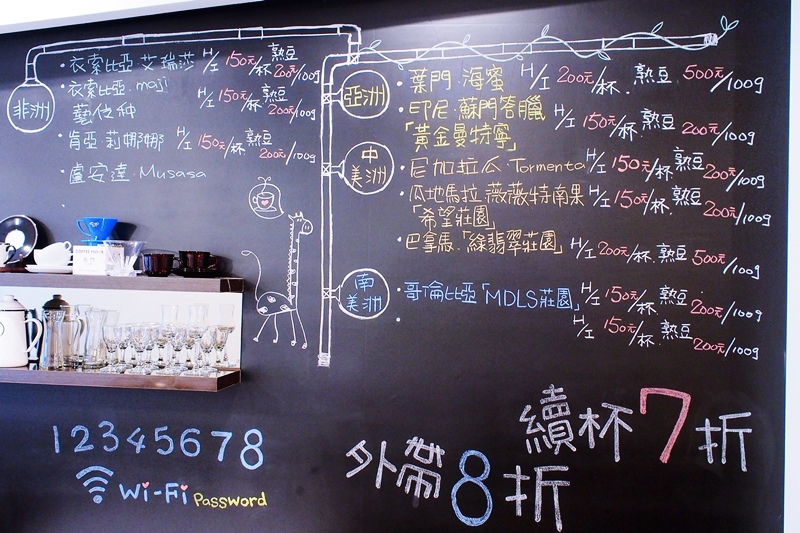 非洲
衣索比亞 艾瑞莎 H/I 150元/杯 熟豆 200元/100g
衣索比亞 maji
藝伎種 H/I 150元/杯 熟豆 200元/100g
肯亞 莉娜娜 H/I 150元/杯 熟豆 200元/100g
盧安達 Musasa
亞洲
葉門 海蜜 H/I 200元/杯 熟豆 500元/100g
印尼 蘇門答臘
「黃金曼特寧」 H/I 150元/杯 熟豆 200元/100g
中美洲
尼加拉瓜 Tormenta H/I 150元/杯 熟豆 200元/100g
瓜地馬拉 薇薇特南果
「希望莊園」 H/I 150元/杯 熟豆 200元/100g
巴拿馬 「綠翡翠莊園」 H/I 200元/杯 熟豆 500元/100g
南美洲
哥倫比亞「MDLS莊園」 H/I 150元/杯 熟豆 200元/100g
H/I 150元/杯 熟豆 200元/100g
續杯7折
外帶8折
12345678
Wi-Fi Password